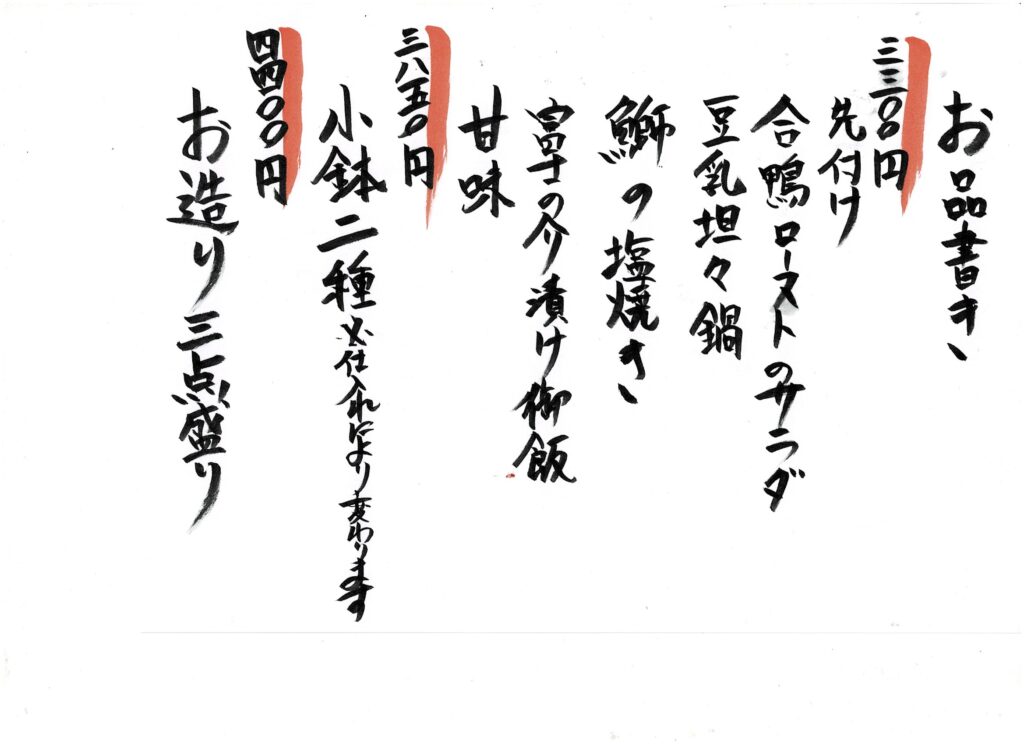 お品書き
三三〇〇円
先付け
合鴨ローストのサラダ
豆乳坦々鍋
鰤の塩焼き
富士の介漬け御飯
甘味
三八五〇円
小鉢二種※仕入れにより変わります
四四〇〇円
お造り三点盛り